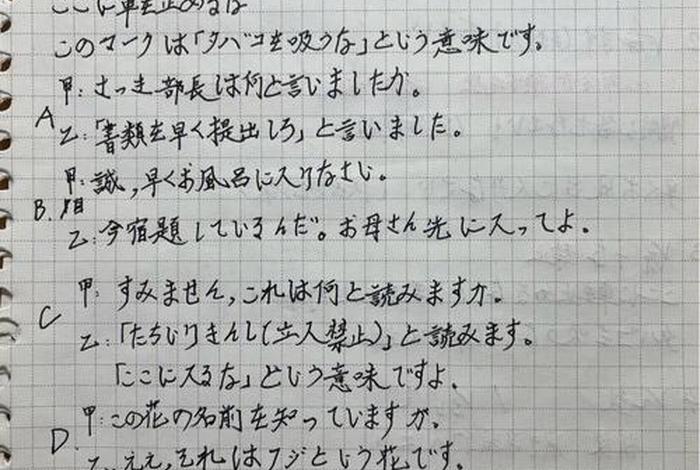 ここに車を止めるな
このマークは「タバコを吸うな」という意味です。
甲: さっき部長は何と言いましたか。
A 乙:「書類を早く提出しろ」と言いました。
甲: 誠,早くお風呂に入りなさい。
B.
乙: 今宿題しているんだ。お母さん先に入ってよ。
甲: すみません,これは何と読みますか。
C 乙:「たちいりきんし(立入禁止)」と読みます。
「ここに入るな」という意味ですよ。
甲: この花の名前を知っていますか。
D. 乙: ええ,それはフジという花です。